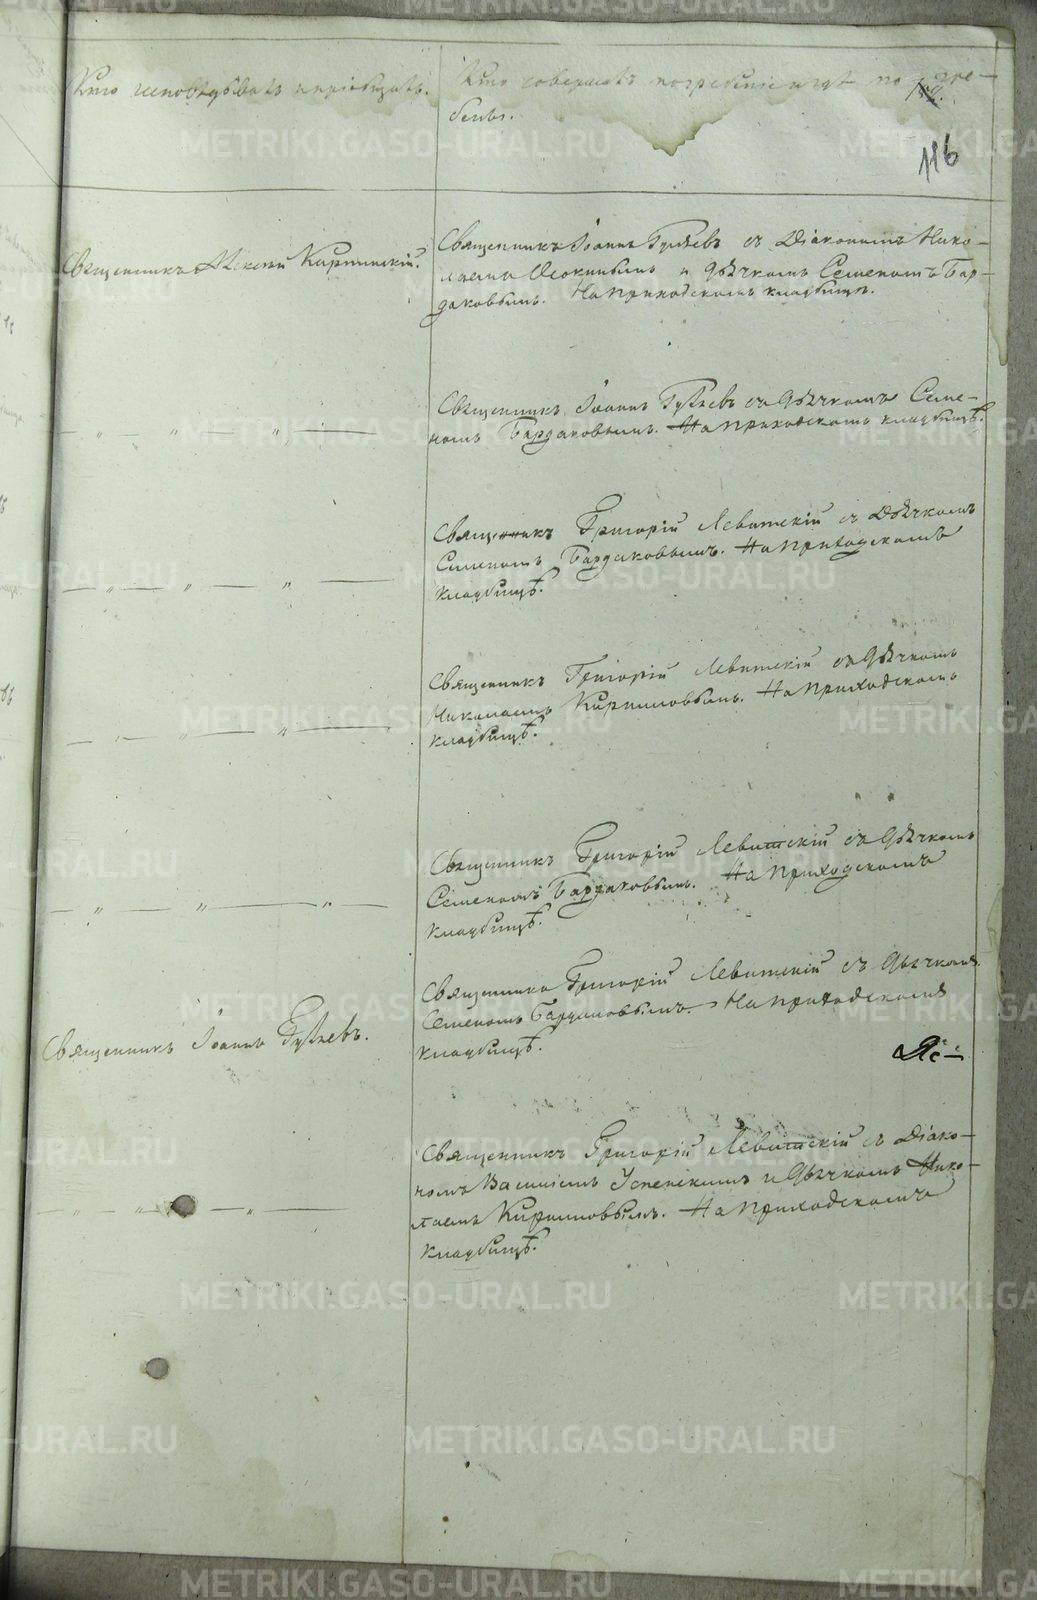 Кто исповѣдывалъ и пріобщалъ.
Кто совершалъ погребеніе и гдѣ по гре-
бены.
116
Священникъ Алексѣй Карпинскій.
Священникъ Іоаннъ Гуляевъ съ Діакономъ Нико-
лаемъ Осокинымъ и дьячкомъ Семеномъ Бар-
даковымъ. На приходскомъ кладбищѣ.
— „ — „ — „ —
Священникъ Іоаннъ Гуляевъ съ дьячкомъ Семе-
номъ Бардаковымъ. На приходскомъ кладбищѣ.
— „ — „ — „ —
Священникъ Григорій Левитскій съ Дьячкомъ
Семеномъ Бардаковымъ. На приходскомъ
кладбищѣ.
— „ — „ — „ —
Священникъ Григорій Левитскій съ дьячкомъ
Николаемъ Кирилловымъ. На приходскомъ
кладбищѣ.
— „ — „ — „ —
Священникъ Григорій Левитскій съ дьячкомъ
Семеномъ Бардаковымъ. На приходскомъ
кладбищѣ.
Священникъ Іоаннъ Гуляевъ.
Священникъ Григорій Левитскій съ дьячкомъ
Семеномъ Бардаковымъ. На приходскомъ
кладбищѣ.
— „ — „ — „ —
Священникъ Григорій Левитскій съ Діако-
номъ Василіемъ Успенскимъ и дьячкомъ Нико-
лаемъ Кирилловымъ. На приходскомъ
кладбищѣ.
METRIKI.GASO-URAL.RU